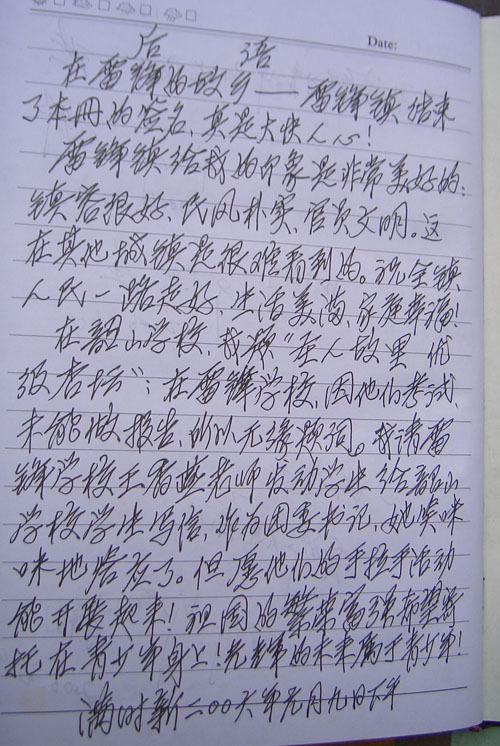 Date:
后语
在雷锋的故乡——雷锋镇结束
了本册的签名,真是大快人心!
雷锋镇给我的印象是非常美好的:
镇容很好、民风朴实、官员文明。这
在其他城镇是很难看到的。祝全镇
人民一路走好、生活美满、家庭幸福!
在韶山学校,我题“圣人故里 优
级杏坛”;在雷锋学校,因他们考试,
未能做报告,所以无缘题词。我请雷
锋学校王 老师发动学生给韶山
学校学生写信,作为团委书记,她笑咪
咪地答应了。但愿他们的手拉手活动
能开展起来!祖国的繁荣富强希望寄
托在青少年身上!光辉的未来属于青少年!
满时新 二00六年元月九日下午